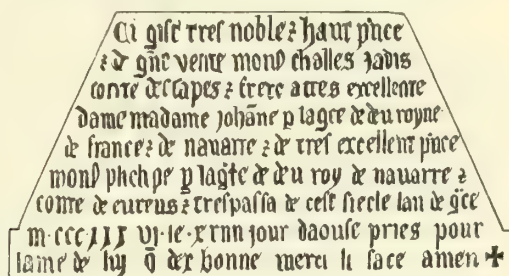 Ci gist tres noble ⁊ haut p̄nce
⁊ de g̃nt vertu mons̃ challes jadis
conte destapes ⁊ frere a tres excellente
dame madame johāne p la g̃ce de deu royne
de france ⁊ de navarre ⁊ de tres excellent p̄nce
mons̃ phelipe p la g̃ce de deu roy de navarre ⁊
conte de evreus ⁊ trespassa de cest siecle lan de g̃ce
m · ccc jjj vj · le · xxiiii jour daoust pries pour
lame de luy q̄ dex bonne merci li face amen ✠